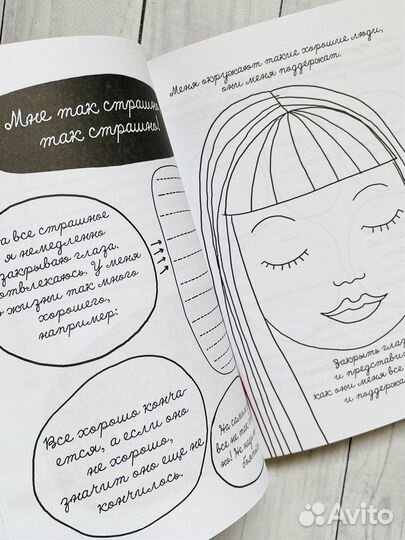 Мне так страшно
так страшно!
все страшное
я немедленно
закрываю глаза.
отвлекаюсь. У меня
жизни так много
хорошего,
например:
Все хорошо конча-
ется, а если оно
не хорошо,
значит оно еще не
кончилось.
На самом
все не так
но! Не
Меня окружают такие хорошие люди,
они меня поддержат.
Закрыть глаза
и представить
как они меня все
и поддержат
Avito